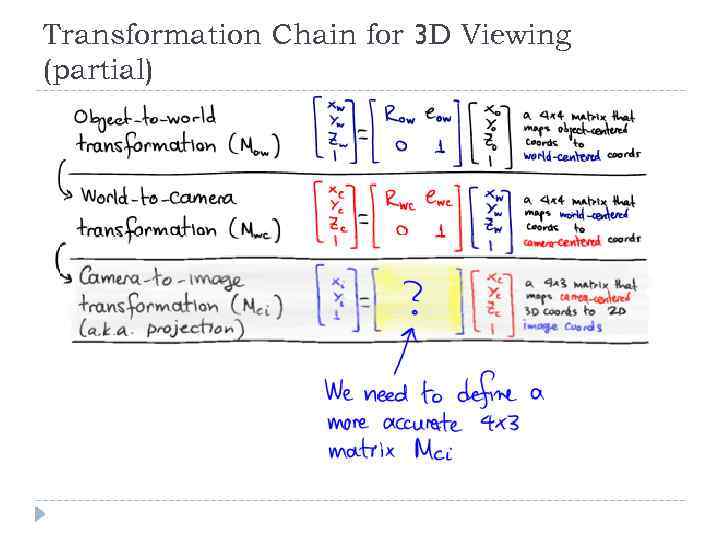 Transformation Chain for 3D Viewing
(partial)
Object-to-world
transformation (Mow)
[xw yw zw 1] = [Row eow 0 1] [xo yo zo 1]
a 4x4 matrix that
maps object-centered
coords to
world-centered coords
World-to-Camera
transformation (Mwc)
[xc yc zc 1] = [Rwc ewc 0 1] [xw yw zw 1]
a 4x4 matrix that
maps world-centered
coords to
camera-centered coords
Camera-to-image
transformation (Mci)
(a.k.a. projection)
[xi yi 1] = [?] [xc yc zc 1]
a 4x3 matrix that
maps camera-centered
3D coords to 2D
image coords
We need to define a
more accurate 4x3
matrix Mci